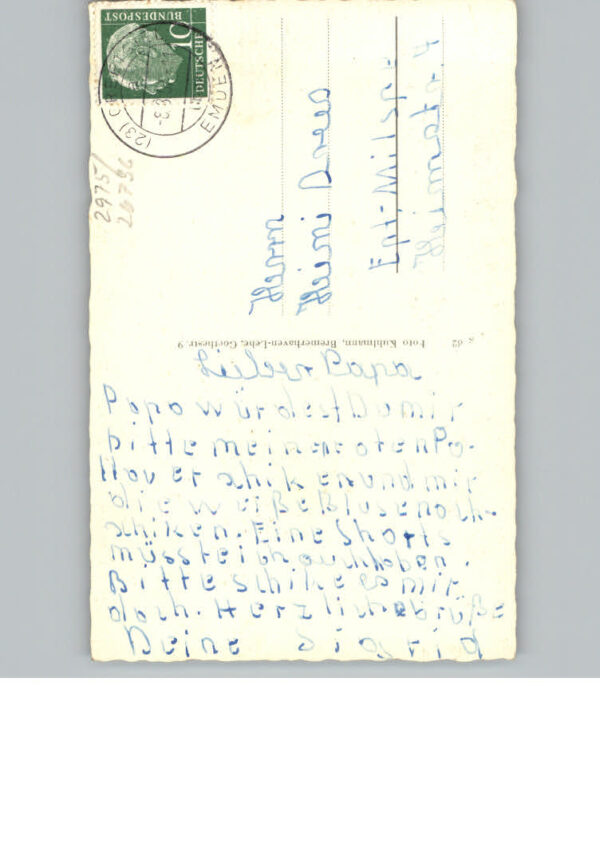 10
DEUTSCHE
BUNDESPOST
(23)
EMDEN
2975/
26796
Herrn
Heini Drews
Ept-Milspe
Heimatstr. 4
Foto Kuhlmann, Bremerhaven-Lehe, Goethestr. 9
62
Lieber Papa
Papa würdest Du mir
bitte meinen roten Po-
llover schiken und mir
die weiße Bluse noch
schiken. Eine Shorts
müsste ich auch haben.
Bitte schike es mir
doch. Herzliche Grüße
Deine Sigrid